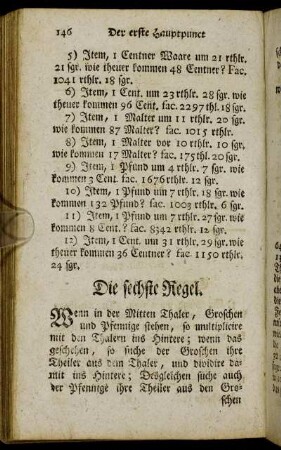 146 Der erste Hauptpunct
5) Item, 1 Centner Waare um 21 rthlr.
21 sgr. wie theuer kommen 48 Centner? Fac.
1041 rthlr. 18 sgr.
6) Item, 1 Cent. um 23 rthlr. 28 sgr. wie
theuer kommen 96 Cent. fac. 2297 thl. 18 sgr.
7) Item, 1 Malter um 11 rthlr. 20 sgr. wie
kommen 87 Malter? fac. 1015 rthlr.
8) Item, 1 Malter vor 10 rthlr. 10 sgr. wie
kommen 17 Malter? fac. 175 thl. 20 sgr.
9) Item, 1 Pfund um 4 rthlr. 7 sgr. wie
kommen 3 Cent. fac. 1676 rthlr. 12 sgr.
10) Item, 1 Pfund um 7 rthlr. 18 sgr. wie
kommen 132 Pfund? fac. 1003 rthlr. 6 sgr.
11) Item, 1 Pfund um 7 rthlr. 27 sgr. wie
kommen 8 Cent.? fac. 8342 rthlr. 12 sgr.
12) Item, 1 Cent. um 31 rthlr. 29 sgr. wie
theuer kommen 36 Centner? fac. 1150 rthlr.
24 sgr.
Die sechste Regel.
Wenn in der Mitten Thaler, Groschen
und Pfennige stehen, so multiplicire
mit den Thalern ins Hintere; wenn das
geschehen, so suche der Groschen ihre
Theiler aus dem Thaler, und dividire da-
mit ins Hintere; Desgleichen suche auch
der Pfennige ihre Theiler aus den Gro-
schen